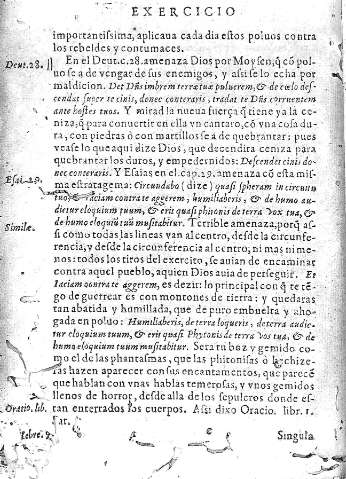 EXERCICIO
importantissima, aplicaua cada dia estos poluos contra
los rebeldes y contumaces.
Deut.28. En el Deut.c.28.amenaza Dios por Moysen, q̃ cõ pol-
uo se a de vengar de sus enemigos, y assi se lo echa por
maldicion. Det Dñs imbrem terræ tuæ puluerem, & de cœlo des-
cendat super te cinis, donec conteraris, tradat te Dñs corruentem
ante hostes tuos. Y mirad la nueua fuerça q̃ tiene ya la ce
niza, q̃ para conuertir en ella vn cantaro, cõ vna cosa du-
ra, con piedras ò con martillos se a de quebrantar: pues
vease lo que aqui dize Dios, que decendira ceniza para
quebrantar los duros, y empedernidos: Descendet cinis do-
nec conteraris. Y Esaias en el cap.29. amenaza cõ esta mis-
Esai.29. ma estratagema: Circundabo (dize) quasi spheram in circuitu
tuo, & iaciam contra te aggerem, humiliaberis, & de humo au-
dietur eloquium tuum, & erit quasi phitonis de terra vox tua, &
Simile. de humo eloquiũ tuũ musitabitur. Terrible amenaza, porq̃ as
si como todas las lineas van al centro, desde la circunfe-
rencia, y desde la circunferencia al centro, ni mas ni me-
nos: todos los tiros del exercito, se auian de encaminar
contra aquel pueblo, aquien Dios auia de perseguir. Et
Iaciam contra te aggerem, es dezir: lo principal con q̃ te tẽ-
go de guerrear es con montones de tierra: y quedaras
tan abatida y humillada, que de puro embuelta y aho-
gada en poluo: Humiliaberis, de terra loqueris, de terra audie-
tur eloquium tuum, & erit quasi Phytonis de terra vox tua, & de
humo eloquium tuum musitabitur. Sera tu boz y gemido co-
mo el de las phantasmas, que las phitonisas ò hechize-
ras hazen aparecer con sus encantamentos, que parecẽ
que hablan con vnas hablas temerosas, y vnos gemidos
llenos de horror, desde alla de los sepulcros donde es-
Oratio. lib. tan enterrados los cuerpos. Assi dixo Oracio. libr. 1.
Sat.
Singula